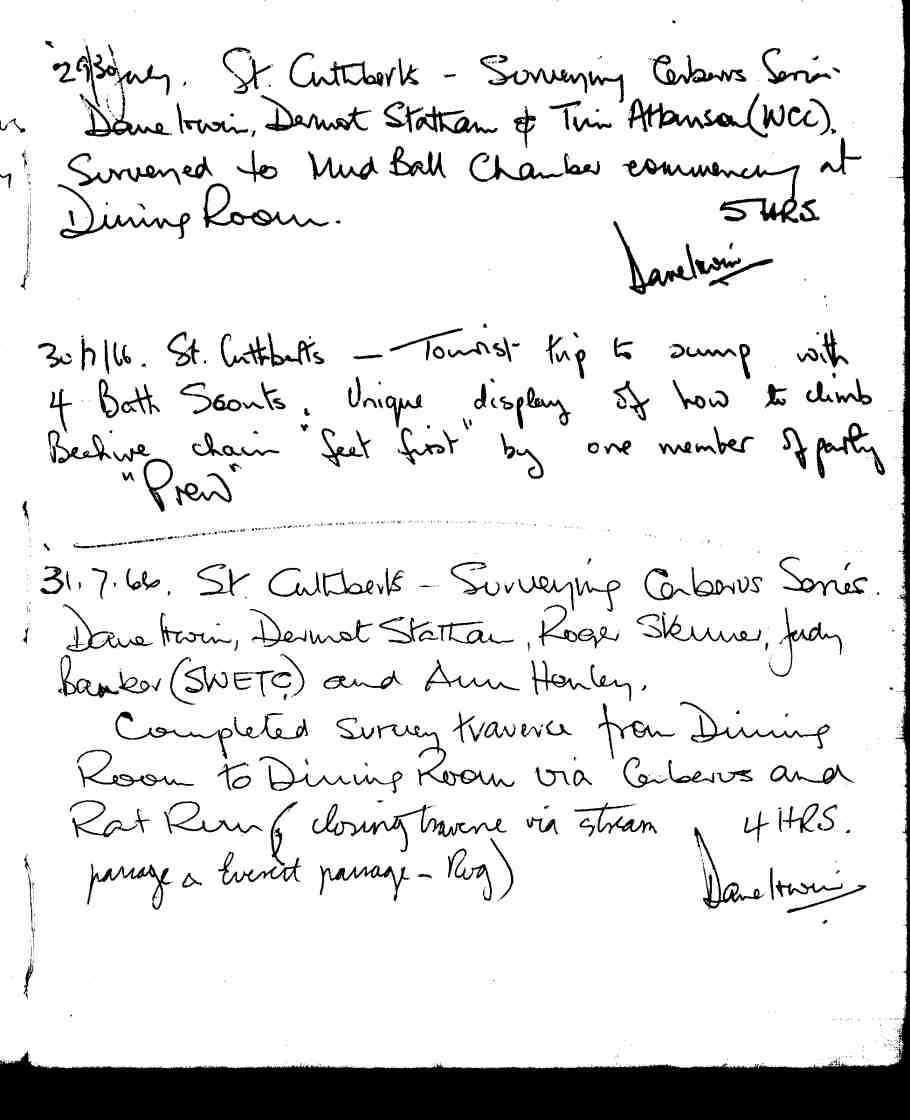 29/30 July. St. Cuthberts - Surveying Cerberus Series
Dave Irwin, Dermot Statham & Tim Atkinson (WCC).
Surveyed to Mud Ball Chamber commencing at
Dining Room. 5 HRS
Dave Irwin
30/7/66. St. Cuthbert's - Tourist trip to sump with
4 Bath Scouts. Unique display of how to climb
Beehive chain "feet first" by one member of party
"Prew"
31.7.66. St. Cuthberts - Surveying Cerberus Series.
Dave Irwin, Dermot Statham, Roger Skinner, Judy
(SWETC) and Ann Henley.
Completed survey traverse from Dining
Room to Dining Room via Cerberus and
Rat Run (& closing traverse via stream 4 HRS.
passage & Everest passage - )
Dave Irwin